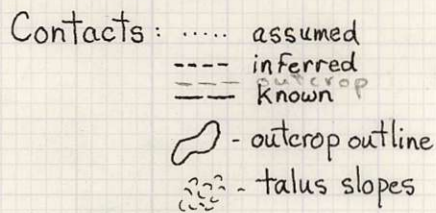 Contacts: ..... assumed
---- inferred
outcrop
known
- outcrop outline
- talus slopes